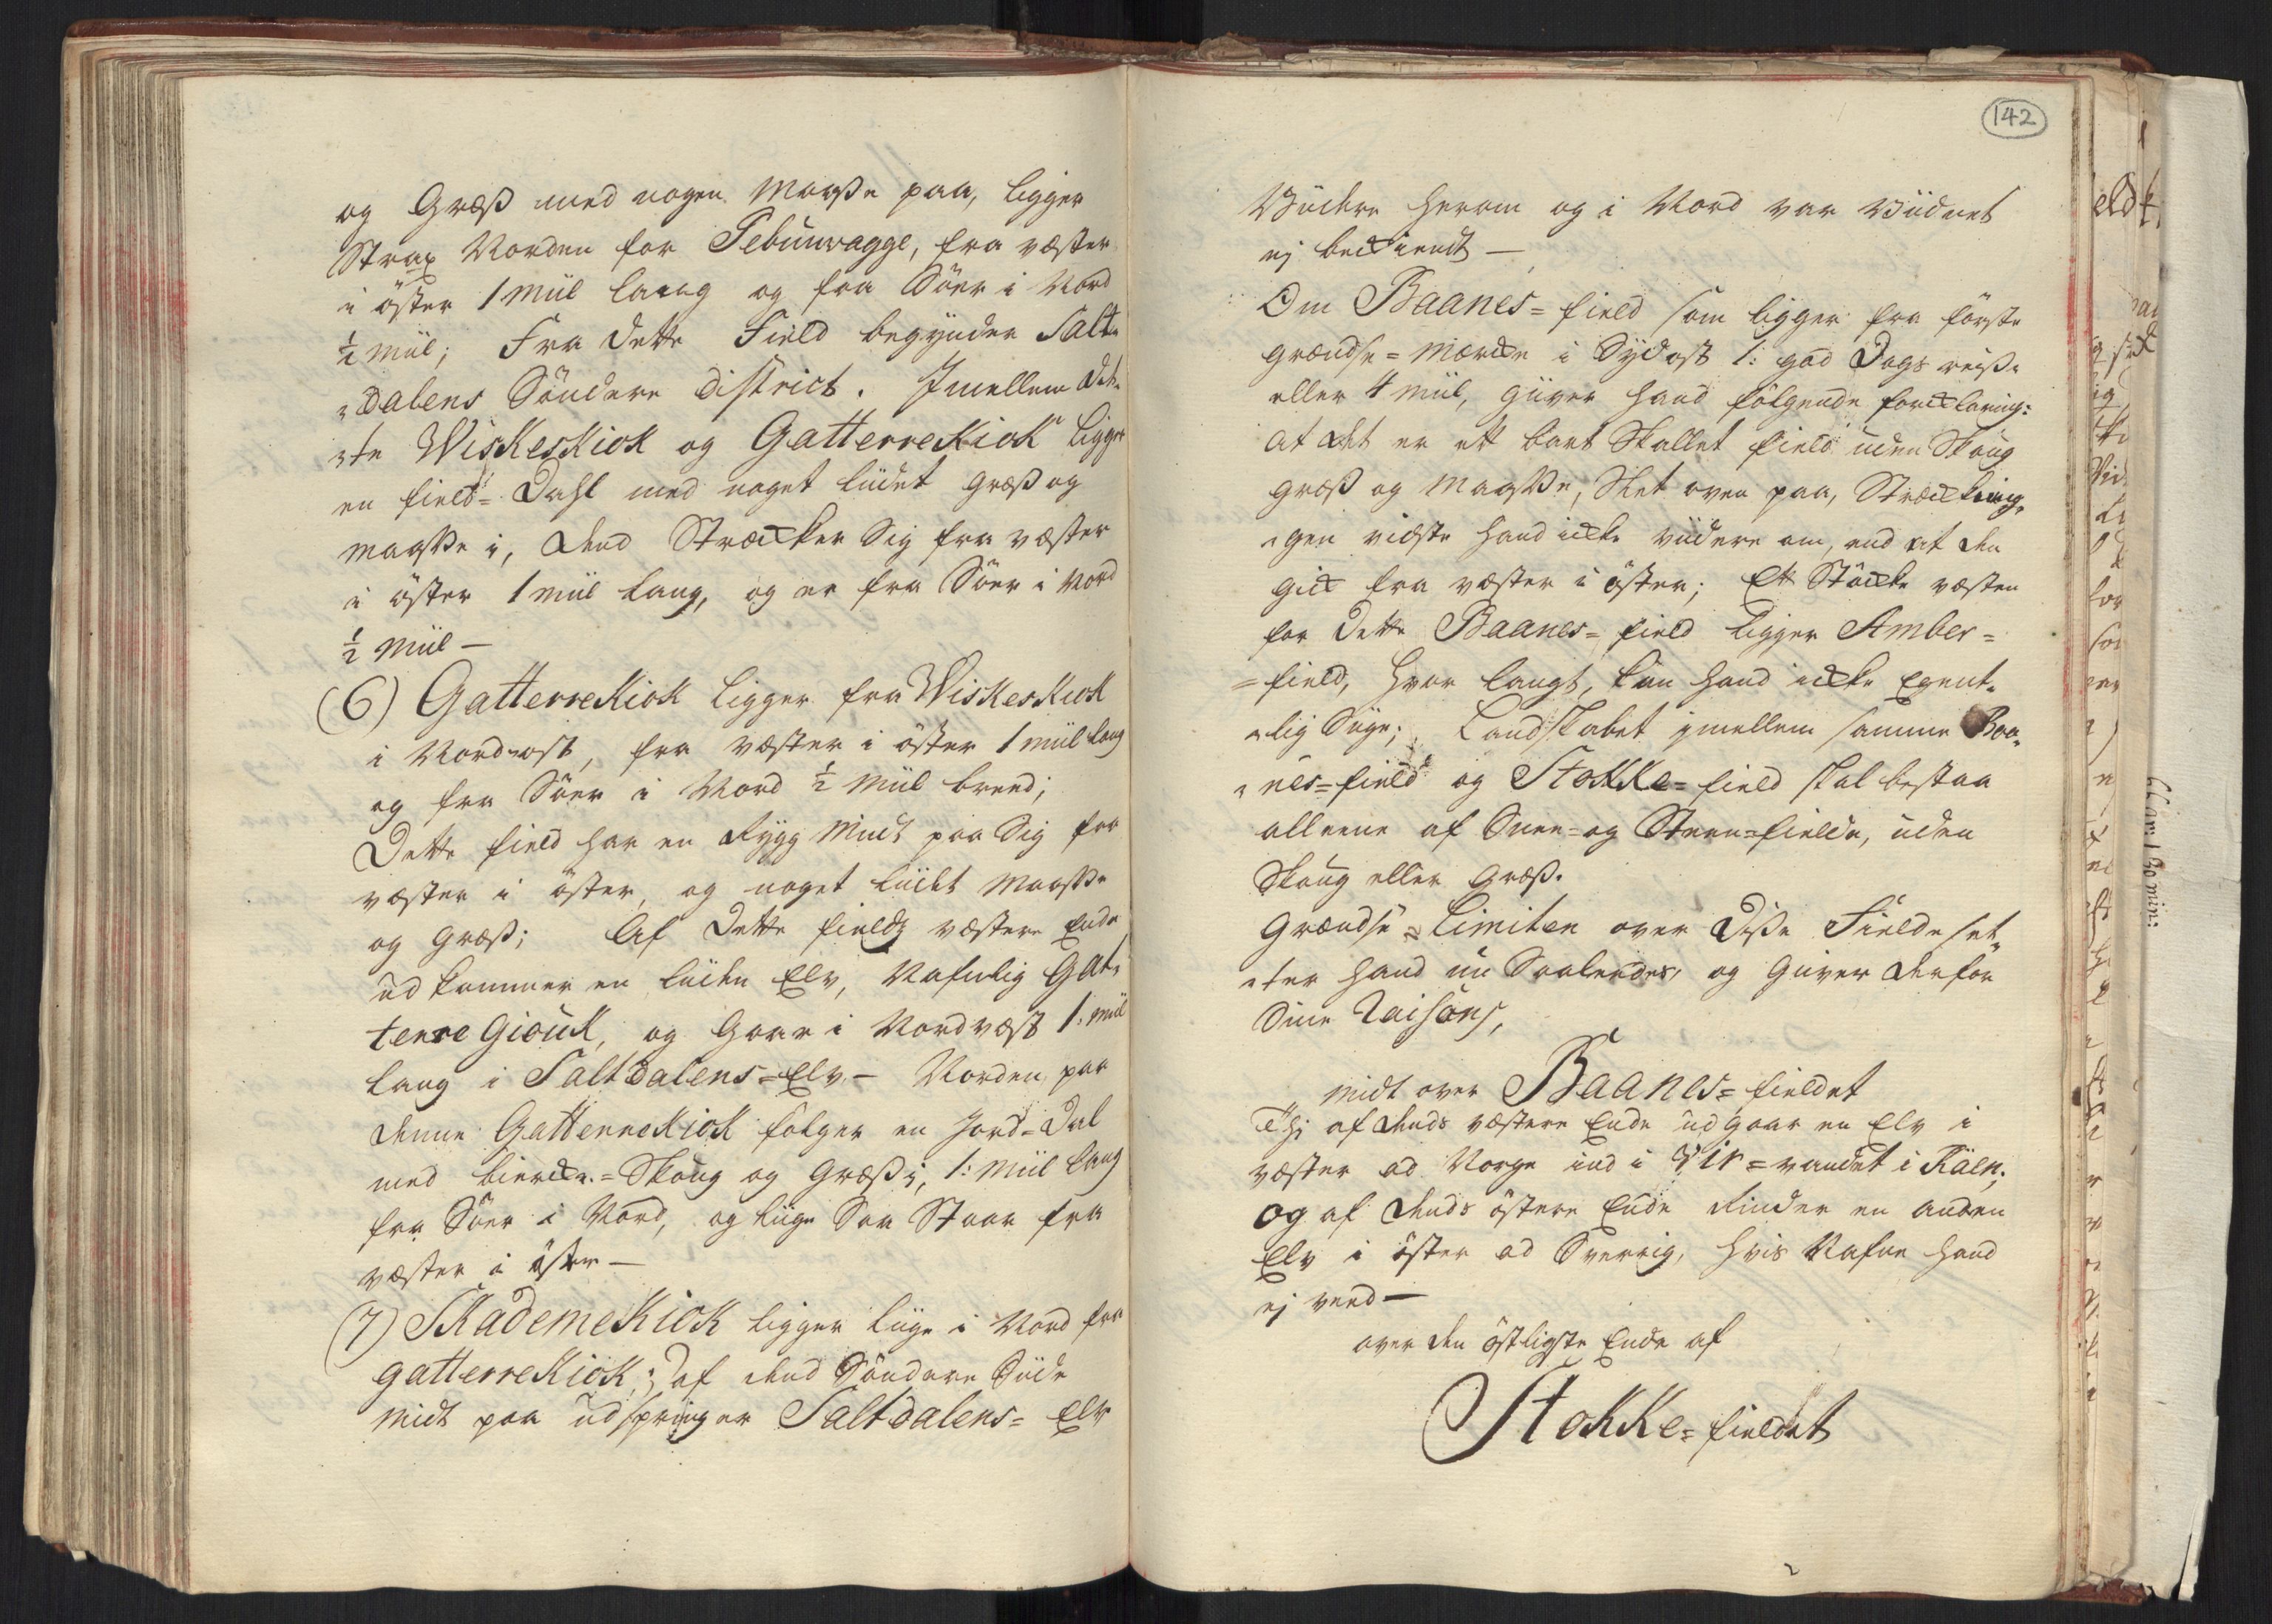 og Græß med nogen Maaße paa, ligger
Strax Norden for Pebunvagge, fra væster
i öster 1 Miil lang og fra Sör i Nord
½ Miil; Fra dette Field begynder Salt-
-dalens Söndere district. Imellem det-
-te WisKesKiok og GatterreKiok ligger
en field-Dahl med noget lüdet græß og
Maaße i, dend Strecker Sig fra væster
i öster 1 Miil lang, og er fra Sör i Nord
½ Miil -
(6) GatterreKiok ligger fra WisKesKiok
i Nordost, fra væster i öster 1 Miil lang
og fra Söer i Nord ½ Miil breed;
Dette field har en Rygg Midt paa Sig fra
væster i öster, og noget liidet Maaße
og græß; Af dette fields væstere Ende
udkommer en liiden Elv, Nafnlig Gat-
terre Giouk, og gaar i Nordvæst 1: Miil
lang i Saltdalens=Elv. - Norden paa
denne GatterreKiok fölger en Jord=Dal
med biercke=Skoug og Græß i, 1: Miil lang
fra Söer i Nord, og liige Saa Stoer fra
væster i öster -
(7) SkademeKiok ligger liige i Nord fra
gatterreKiok; af dend Söndere Siide
Midt paa udspringer Saltdalens= Elv
142
Viidere herom og i Nord var Vidnet
ej beckiendt -
Om Baanes=field som ligger fra förste
Grændse=Mercke i Sydost 1: god Dags reise
eller 4 Miil, giiver hand fölgende forcklaring:
at det er ett bart Skallet field uden Skoug
græß og Maaße, Slet oven paa, Strecknin-
-gen vidste hand icke viidere om, end at den
gick fra væster i öster; Ett Stöcke væsten
for dette Baanes=field ligger Amber=
=field, hvor langt, kan hand icke Egent-
-lig Siige; Landskabet imellem samme Baa-
-nes=field og StoKKe=field skal bestaa
alleene af Snee=og Steen=fielde, uden
Skoug eller Græß.
Grændse=Limiten over diße Fielde set-
-ter hand nu Saaledes, og giiver derfor
Sine Raisons,
midt over Baanes=fieldet
Thi af dends væstere Ende udgaar en Elv i
væster ad Norge ind i Vir=vandet i Raen;
og af dends östere Ende Rinder en anden
Elv i öster ad Sverrig, hvis Nafn hand
ej veed -
over den östligste Ende af
StoKKe=fieldet